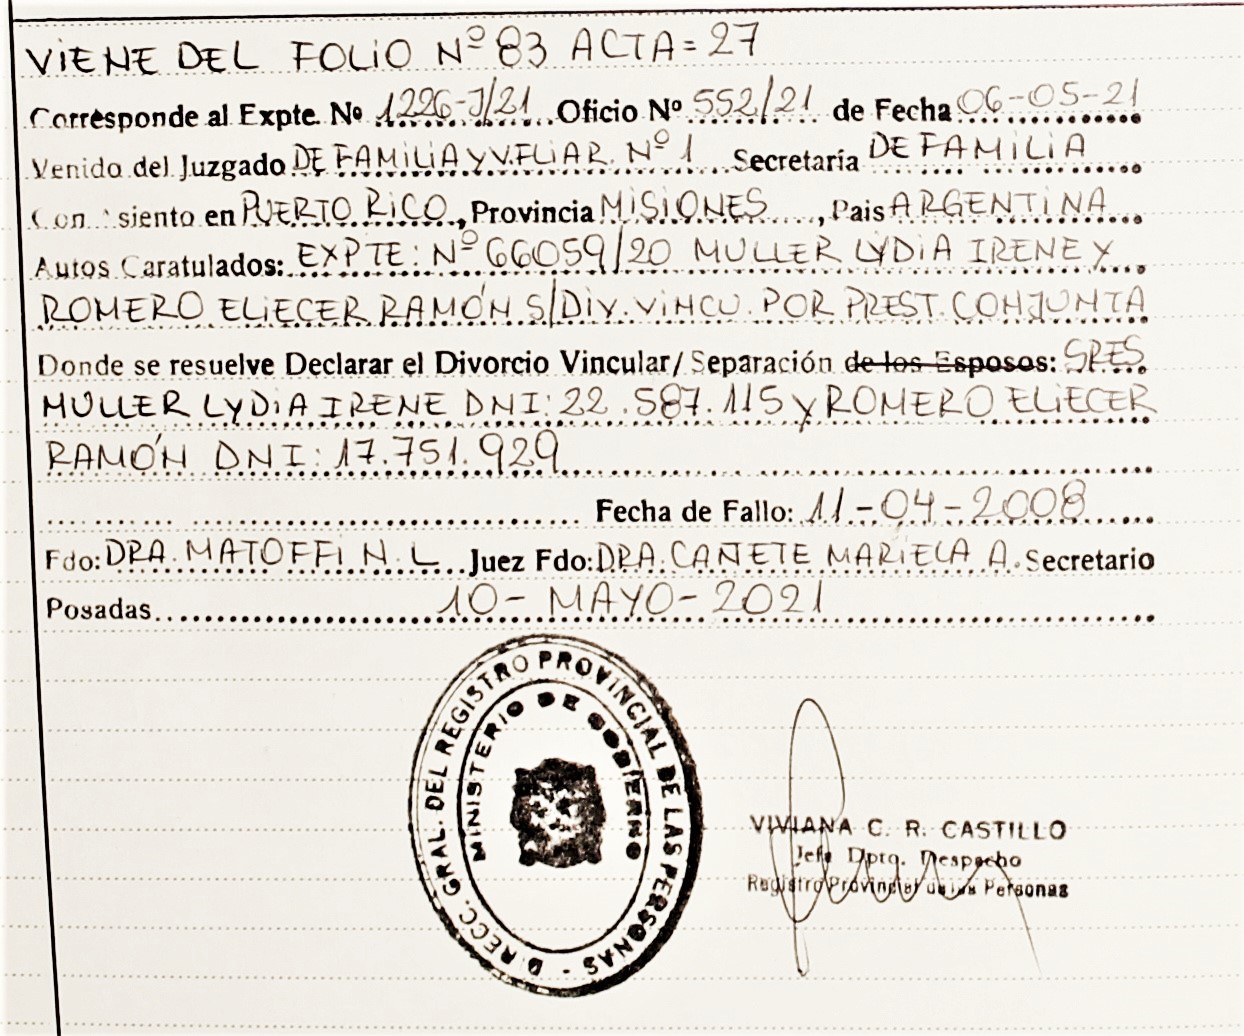 VIENE DEL FOLIO Nº 83 ACTA = 27
Corresponde al Expte. Nº 1226-J/21 Oficio Nº 552/21 de Fecha 06-05-21
Venido del Juzgado DE FAMILIA Y V.FLIAR. Nº 1 Secretaría DE FAMILIA
Con Asiento en PUERTO RICO, Provincia MISIONES, Pais ARGENTINA
Autos Caratulados: EXPTE: Nº 66059/20 MULLER LYDIA IRENE Y
ROMERO ELIECER RAMÓN S/DIV. VINCU. POR PREST. CONJUNTA
Donde se resuelve Declarar el Divorcio Vincular/ Separación de los Esposos: SRES
MULLER LYDIA IRENE DNI: 22.587.115 y ROMERO ELIECER
RAMÓN DNI: 17.751.929
Fecha de Fallo: 11-04-2008
Fdo: DRA. MATOFFI N. L. Juez Fdo: DRA. CAÑETE MARIELA A. Secretario
Posadas 10-MAYO-2021
DIRECC. GRAL. DEL REGISTRO PROVINCIAL DE LAS PERSONAS -
MINISTERIO DE GOBIERNO
VIVIANA C. R. CASTILLO
Jefe Dpto. Despacho
Registro Provincial de las Personas